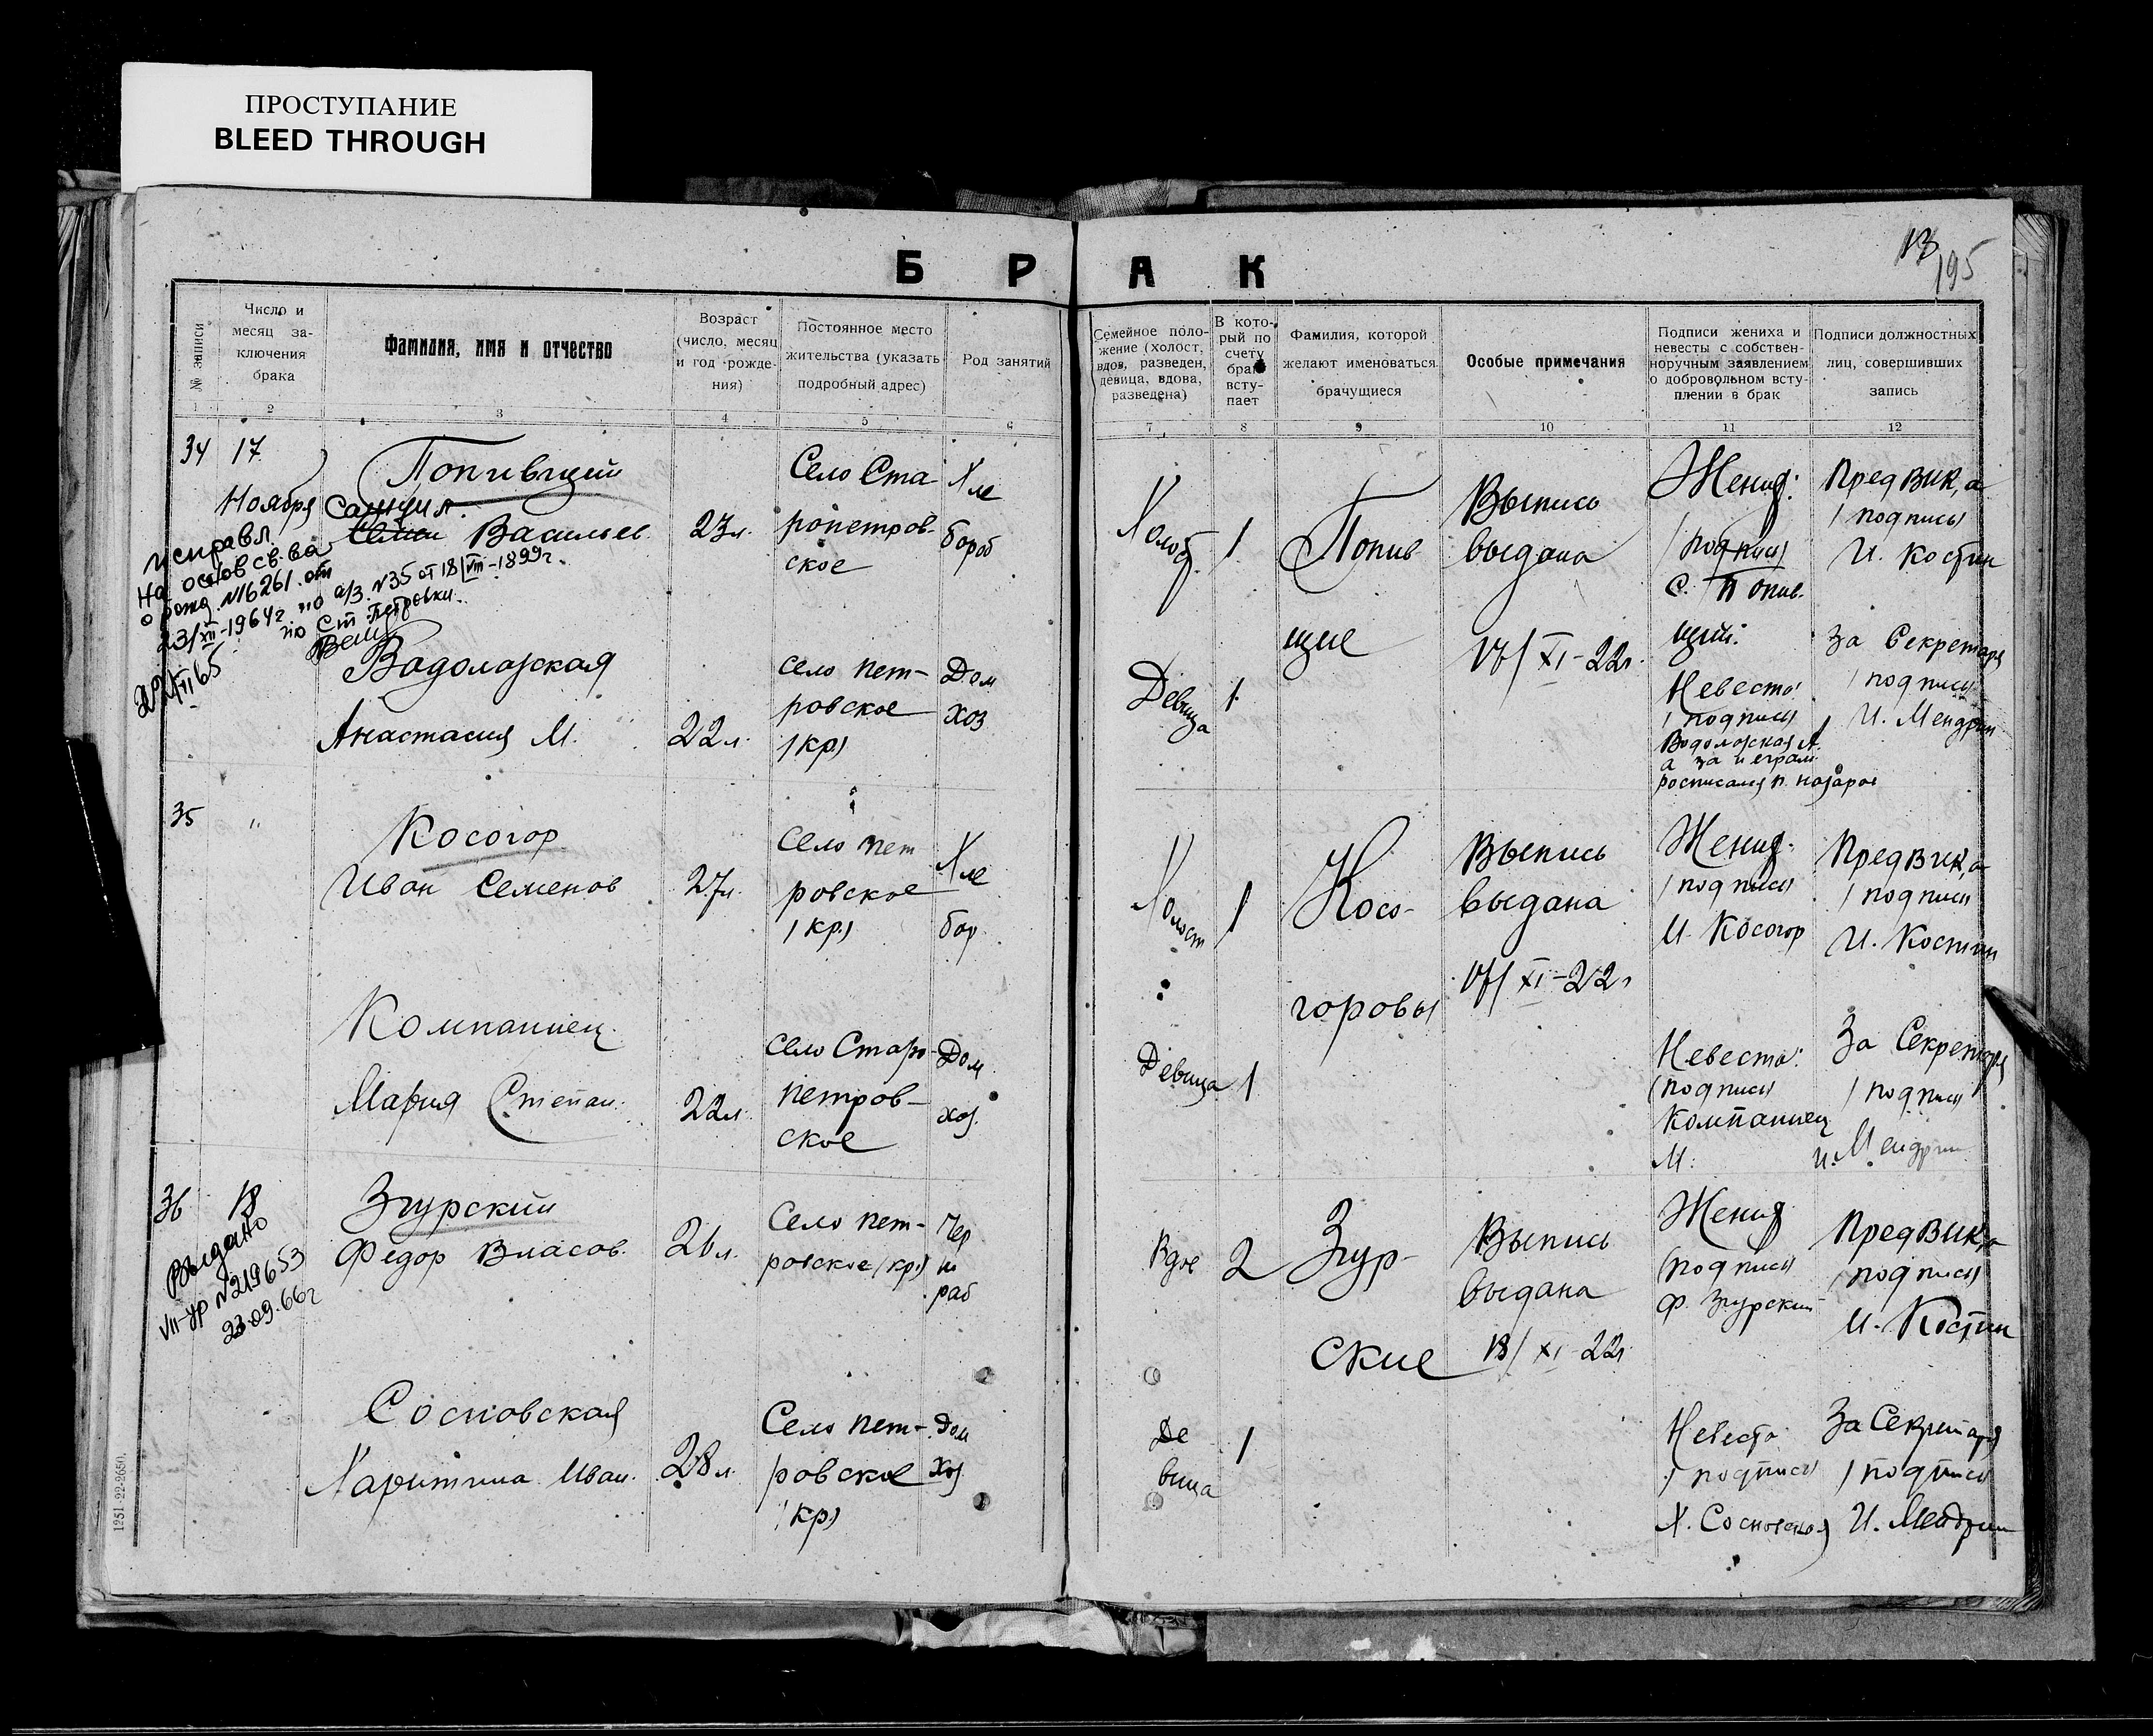 ПРОСТУПАНИЕ
BLEED THROUGH
13
195
Б Р А К
№ записи
Число и
месяц за-
ключения
брака
Фамилия, имя и отчество
Возраст
(число, месяц
и год рожде-
ния)
Постоянное место
жительства (указать
подробный адрес)
Род занятий
Семейное поло-
жение (холост,
вдов, разведен,
девица, вдова,
разведена)
В кото-
рый по
счету
брак
всту-
пает
Фамилия, которой
желают именоваться
брачущиеся
Особые примечания
Подписи жениха и
невесты с собствен-
норучным заявлением
о добровольном всту-
плении в брак
Подписи должностных
лиц, совершивших
запись
1 2 3 4 5 6 7 8 9 10 11 12
34
17
Ноября
исправл.
на основ св.ва
о рожд. №16261. от
23/XII-1964г по а/з. №35 от 18/VIII-1899г.
по Ст. Петровки.
Попивщий
Самуил
Васильев
23л.
Село Ста
ропетров-
ское
Хле
бороб
Холост
1
Попив
щие
Выпись
выдана
17/XI-22г.
Жених:
/подпись/
С. Попив-
щий:
ПредВИК,а
/подпись/
И. Костин
Водолажская
Анастасия М.
22л.
село пет-
ровское
/кр/
Дом
хоз
Девица
1
Невеста:
/подпись/
Водолажская А.
а за неграм.
росписался П. Назаров
За Секретаря
/подпись/
И. Мендрин
35
"
Косогор
Иван Семенов
27л.
Село пет
ровское
/кр/
Хле
бор
Холост
1
Косо-
горовы
Выпись
выдана
17/XI-22г
Жених:
/подпись/
И. Косогор
ПредВИК,а
/подпись/
И. Костин
Компаниец
Мария Степан.
22л.
село Старо-
петров-
ское
Дом
хоз.
Девица
1
Невеста:
(подпись)
Компаниец
М.
За Секретаря
/подпись/
И. Мендрин
36
18
Выдано
VII-УР №219653
23.09.66г
Згурский
Федор Власов.
26л.
Село пет-
ровское/кр/
Чер
но
раб
Вдов
2
Згур-
ские
Выпись
выдана
18/XI-22г.
Жених
(подпись)
Ф. Згурский
ПредВИК,а
/подпись/
И. Костин
Сосновская
Харитина Иван.
28л.
Село пет-
ровское
/кр/
Дом
хоз.
Де
вица
1
Невеста
/подпись/
Х. Сосновская
За Секретаря
/подпись/
И. Мендрин
1251-22-2650.